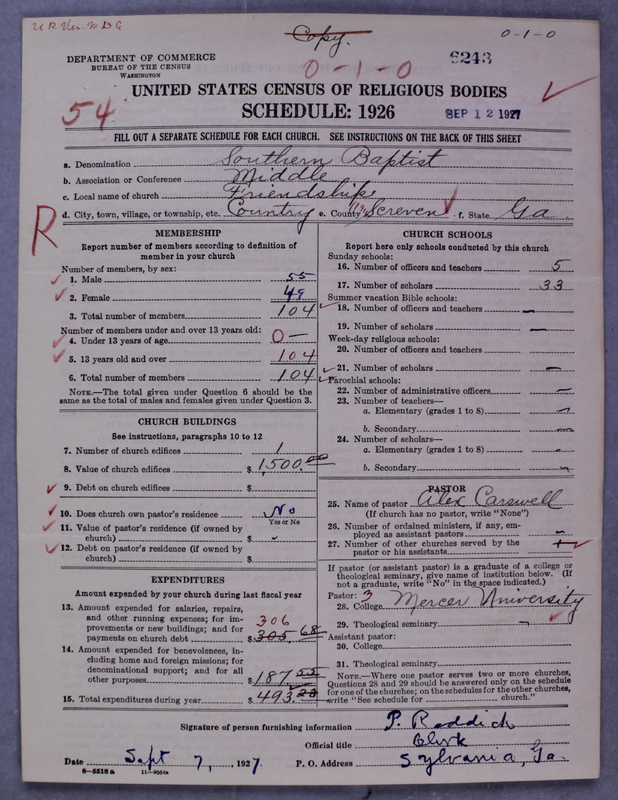 Copy.
0-1-0
6243
DEPARTMENT OF COMMERCE
BUREAU OF THE CENSUS
WASHINGTON
0-1-0
UNITED STATES CENSUS OF RELIGIOUS BODIES
54
SCHEDULE: 1926
SEP 12 1927
FILL OUT A SEPARATE SCHEDULE FOR EACH CHURCH. SEE INSTRUCTIONS ON THE BACK OF THIS SHEET
a. Denomination Southern Baptist
b. Association or Conference Middle
c. Local name of church Friendship
d. City, town, village, or township, etc. Country e. County Screven f. State Ga.
R
MEMBERSHIP
Report number of members according to definition of
member in your church
Number of members, by sex:
1. Male 55
2. Female 49
3. Total number of members 104
Number of members under and over 13 years old:
4. Under 13 years of age 0 —
5. 13 years old and over 104
6. Total number of members 104
NOTE.—The total given under Question 6 should be the
same as the total of males and females given under Question 3.
CHURCH BUILDINGS
See instructions, paragraphs 10 to 12
7. Number of church edifices 1
8. Value of church edifices $ 1,500.00
9. Debt on church edifices $
10. Does church own pastor's residence? No
Yes or No
11. Value of pastor's residence (if owned by
church) $ -
12. Debt on pastor's residence (if owned by
church) $
EXPENDITURES
Amount expended by your church during last fiscal year
13. Amount expended for salaries, repairs,
and other running expenses; for im-
provements or new buildings; and for
306
payments on church debt $ 305.68
14. Amount expended for benevolences, in-
cluding home and foreign missions; for
denominational support; and for all
other purposes $ 187.55
15. Total expenditures during year $ 493.23
CHURCH SCHOOLS
Report here only schools conducted by this church
Sunday schools:
16. Number of officers and teachers 5
17. Number of scholars 33
Summer vacation Bible schools:
18. Number of officers and teachers —
19. Number of scholars —
Week-day religious schools:
20. Number of officers and teachers
21. Number of scholars —
Parochial schools:
22. Number of administrative officers —
23. Number of teachers—
a. Elementary (grades 1 to 8) —
b. Secondary —
24. Number of scholars—
a. Elementary (grades 1 to 8) -
b. Secondary -
PASTOR
25. Name of pastor Alex Carswell
(If church has no pastor, write "None")
26. Number of ordained ministers, if any, em-
ployed as assistant pastors —
27. Number of other churches served by the
pastor or his assistants
If pastor (or assistant pastor) is a graduate of a college or
theological seminary, give name of institution below. (If
not a graduate, write "No" in the space indicated.)
Pastor: 3
28. College Mercer University
29. Theological seminary -
Assistant pastor:
30. College
31. Theological seminary
NOTE.—Where one pastor serves two or more churches,
Questions 28 and 29 should be answered only on the schedule
for one of the churches; on the schedules for the other churches,
write "See schedule for church."
Signature of person furnishing information P. Reddick
Official title Clerk
Date Sept 7, 1927. P. O. Address Sylvania, Ga.
8-5518a 11-9054a